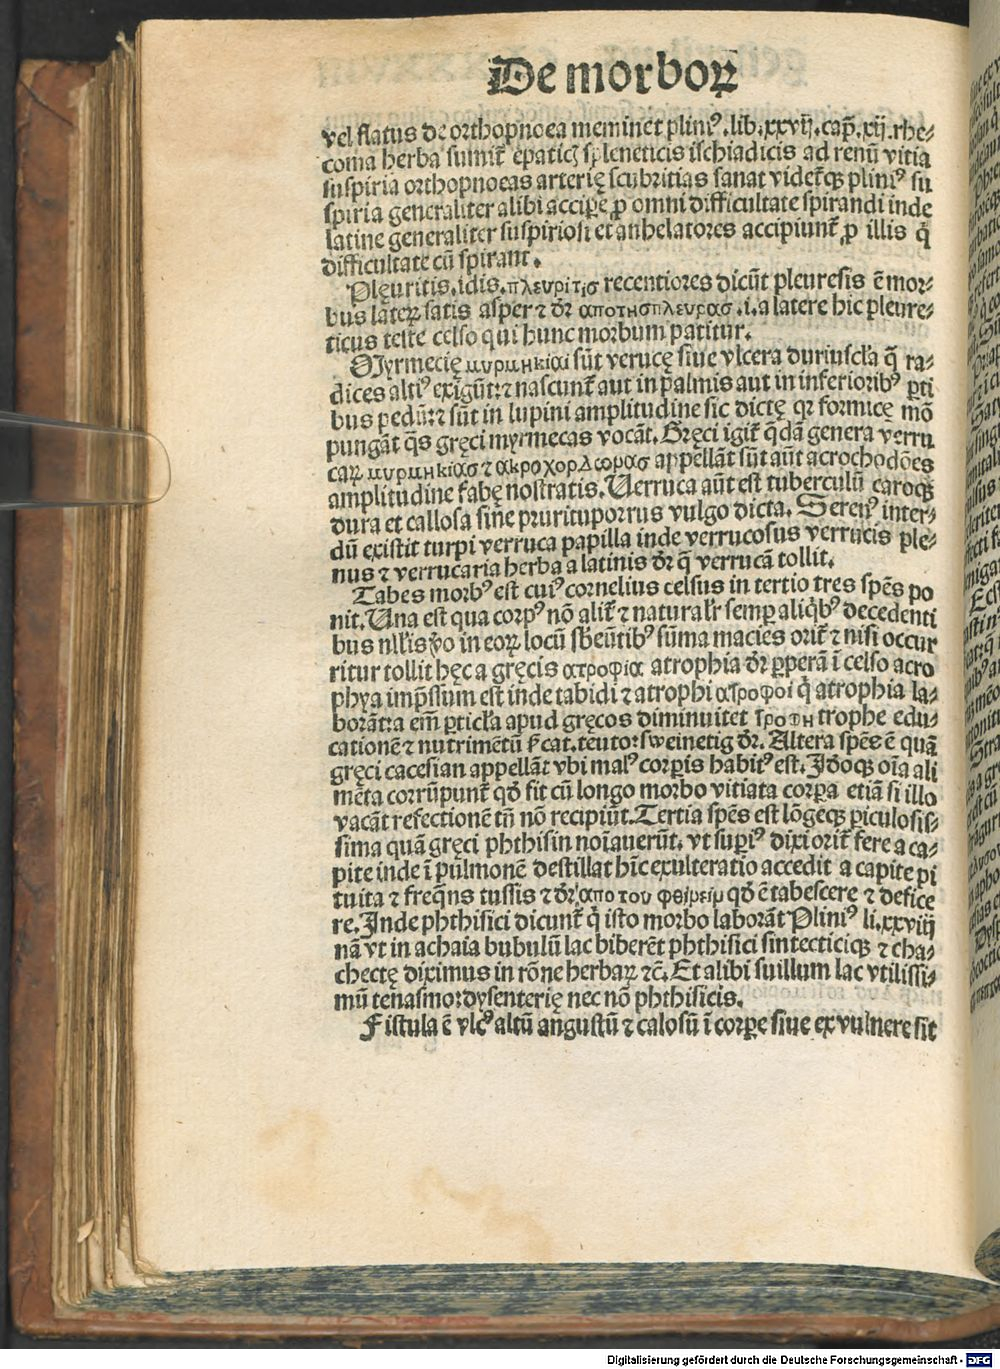 De morboꝝ
vel flatus de orthopnoea meminet pliniꝰ.lib.xxvij.cap̄.xij.rhe⸗
coma herba sumit̄ epaticꝭ spleneticis ischiadicis ad renū vitia
suspiria orthopnoeas arterię scabritias sanat videt̄qꝫ pliniꝰ su
spiria generaliter alibi accipe ꝓ omni difficultate spirandi inde
latine generaliter suspiriosi et anhelatores accipiunt̄ ꝓ illis q̇
difficultate cū spirant.
Plęuritis.idis.πλευρίτις recentiores dicūt pleuresis ē mor⸗
bus lateꝝ satis asper ⁊ dr̄ αποτησπλευρασ.i.a latere hic pleure⸗
ticus teste celso qui hunc morbum patitur.
Myrmecię μυρμηκίαι sūt verucę siue vlcera duriuscl̄a q̄ ra⸗
dices altiꝰ exigūt:⁊ nascunt̄ aut in palmis aut in inferioribꝰ ꝑti
bus pedū:⁊ sūt in lupini amplitudine sic dictę qꝛ formicę mō
pungāt q̄s gręci myrmecas vocāt.Gręci igit̄ q̄dā genera verru
caꝝ μυρμηκίασ ⁊ ακροχορλεορασ appellāt sūt aūt acrochodōes
amplitudine fabę nostratis.Uerruca aūt est tuberculū caroqꝫ
dura et callosa sine pruritu porrus vulgo dicta.Serenꝰ inter⸗
dū existit turpi verruca papilla inde verrucosus verrucis ple⸗
nus ⁊ verrucaria herba a latinis dr̄ q̄ verrucā tollit.
Tabes morbꝰ est cuiꝰ cornelius celsus in tertio tres spēs po
nit.Una est qua corpꝰ nō alit̄ ⁊ naturalr̄ semꝑ aliq̇bꝰ decedenti
bus nllis v̊o in eoꝝ locū sbeūtibꝰ sūma macies orit̄ ⁊ nisi occur
ritur tollit hęc a gręcis ατροφια atrophia dr̄ ꝑperā ī celso acro
phya imp̄ssum est inde tabidi ⁊ atrophi ατροφοι q̇ atrophia la⸗
borāt:a em̄ ꝑticl̄a apud gręcos diminuit et τροφη trophe edu⸗
cationē ⁊ nutrimētū s̄cat.teuto:sweinetig dr̄.Altera spēs ē quā
gręci cacesian appellāt vbi malꝰ corꝑis habitꝰ est.Idoqꝫ oīa ali
mēta corrūpunt̄ qd̄ fit cū longo morbo vitiata corꝑa etiā si illo
vacāt refectionē tn̄ nō recipiūt.Tertia spēs est lōgeqꝫ ꝑiculosis⸗
sima quā gręci phthisin noīauerūt.vt suꝑiꝰ dixi orit̄ fere a ca⸗
pite inde ī pulmonē destillat hīc exulteratio accedit a capite pi
tuita ⁊ freq̄ns tussis ⁊ dr̄ απο του φθίρειμ qd̄ ē tabescere ⁊ defice
re.Inde phthisici dicunt̄ q̇ isto morbo laborāt Pliniꝰ li.xxviij
nā vt in achaia bubulū lac biberēt phthisici sintecticiqꝫ ⁊ cha⸗
chectę diximus in rōne herbaꝝ ⁊c̄.Et alibi suillum lac vtilissi⸗
mū tenasmo:dysenterię nec nō phthisicis.
Fistula ē vlcꝰ altū angustū ⁊ calosū ī corꝑe siue ex vulnere sit
Digitalisierung gefördert durch die Deutsche Forschungsgemeinschaft - DFG